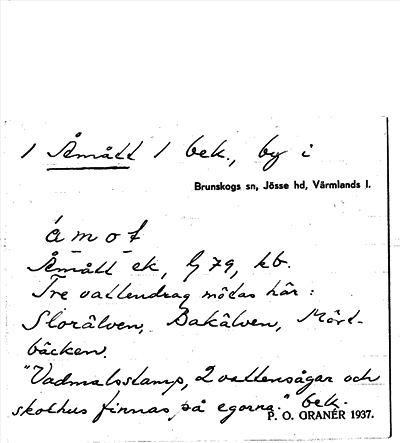 1 Åmått 1 bek., by i
Brunskogs sn, Jösse hd, Värmlands l.
åmot
Åmått ek, G 79, kb.
Tre vattendrag mötas här:
Storälven, Bakälven, Mört-
bäcken.
"Vadmalsstamp, 2 vattensågar och
skolhus finnas på egorna." bek.
P. O. GRANÉR 1937.